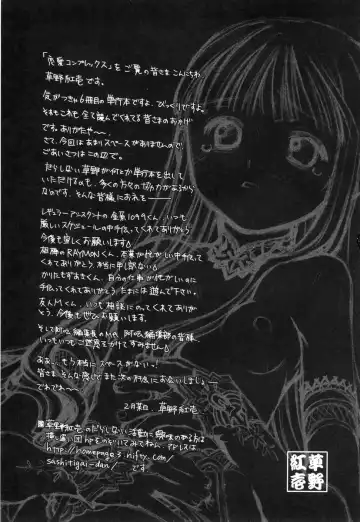 「危愛コンプレックス」をご覧の皆さまこんにちわ
草野紅壱です。
気がつきゃ6冊目の単行本ですよ、びっくりですよ。
それもこれも、全て読んでくれてる皆さまのおかげ
です。ありがたや〜。
さて、今回はあまりスペースがありませんので
ごあいさつはこの辺で。
だらしない草野が何とか単行本を出して
いただけるのも、多くの方々の協力があるから
なのです。そんな皆様にお礼を——
レギュラーアシスタントの 1099くん、いつも
厳しいスケジュールの中手伝ってくれてありがとう
今後も宜しくお願いします
RAYMONくん、本業が忙しい中手伝って
くれてありがとう、本当に申し訳ない
かりたもずまさくん、自分の仕事が忙しいのに
手伝ってくれてありがとう、たまには遊んで下さい。
友人Mくん、いつも相談にのってくれてありが
とう、今後も宜しくお願いします。
そして 編集長のM村 編集部の皆様、
いつもいつもご迷惑をかけてすみません
ああ…もう本当にスペースがないっ!
皆さま、そんな感じでまた次の作品でお会いしましょー
でわでわ〜
2月某日、草野紅壱
草野紅壱のだらしない活動に興味のある方は
hpものぞいてみてね。アドレスは
http://homepage3.nifty.com/
sashitigai-dan/ です
草野
紅壱